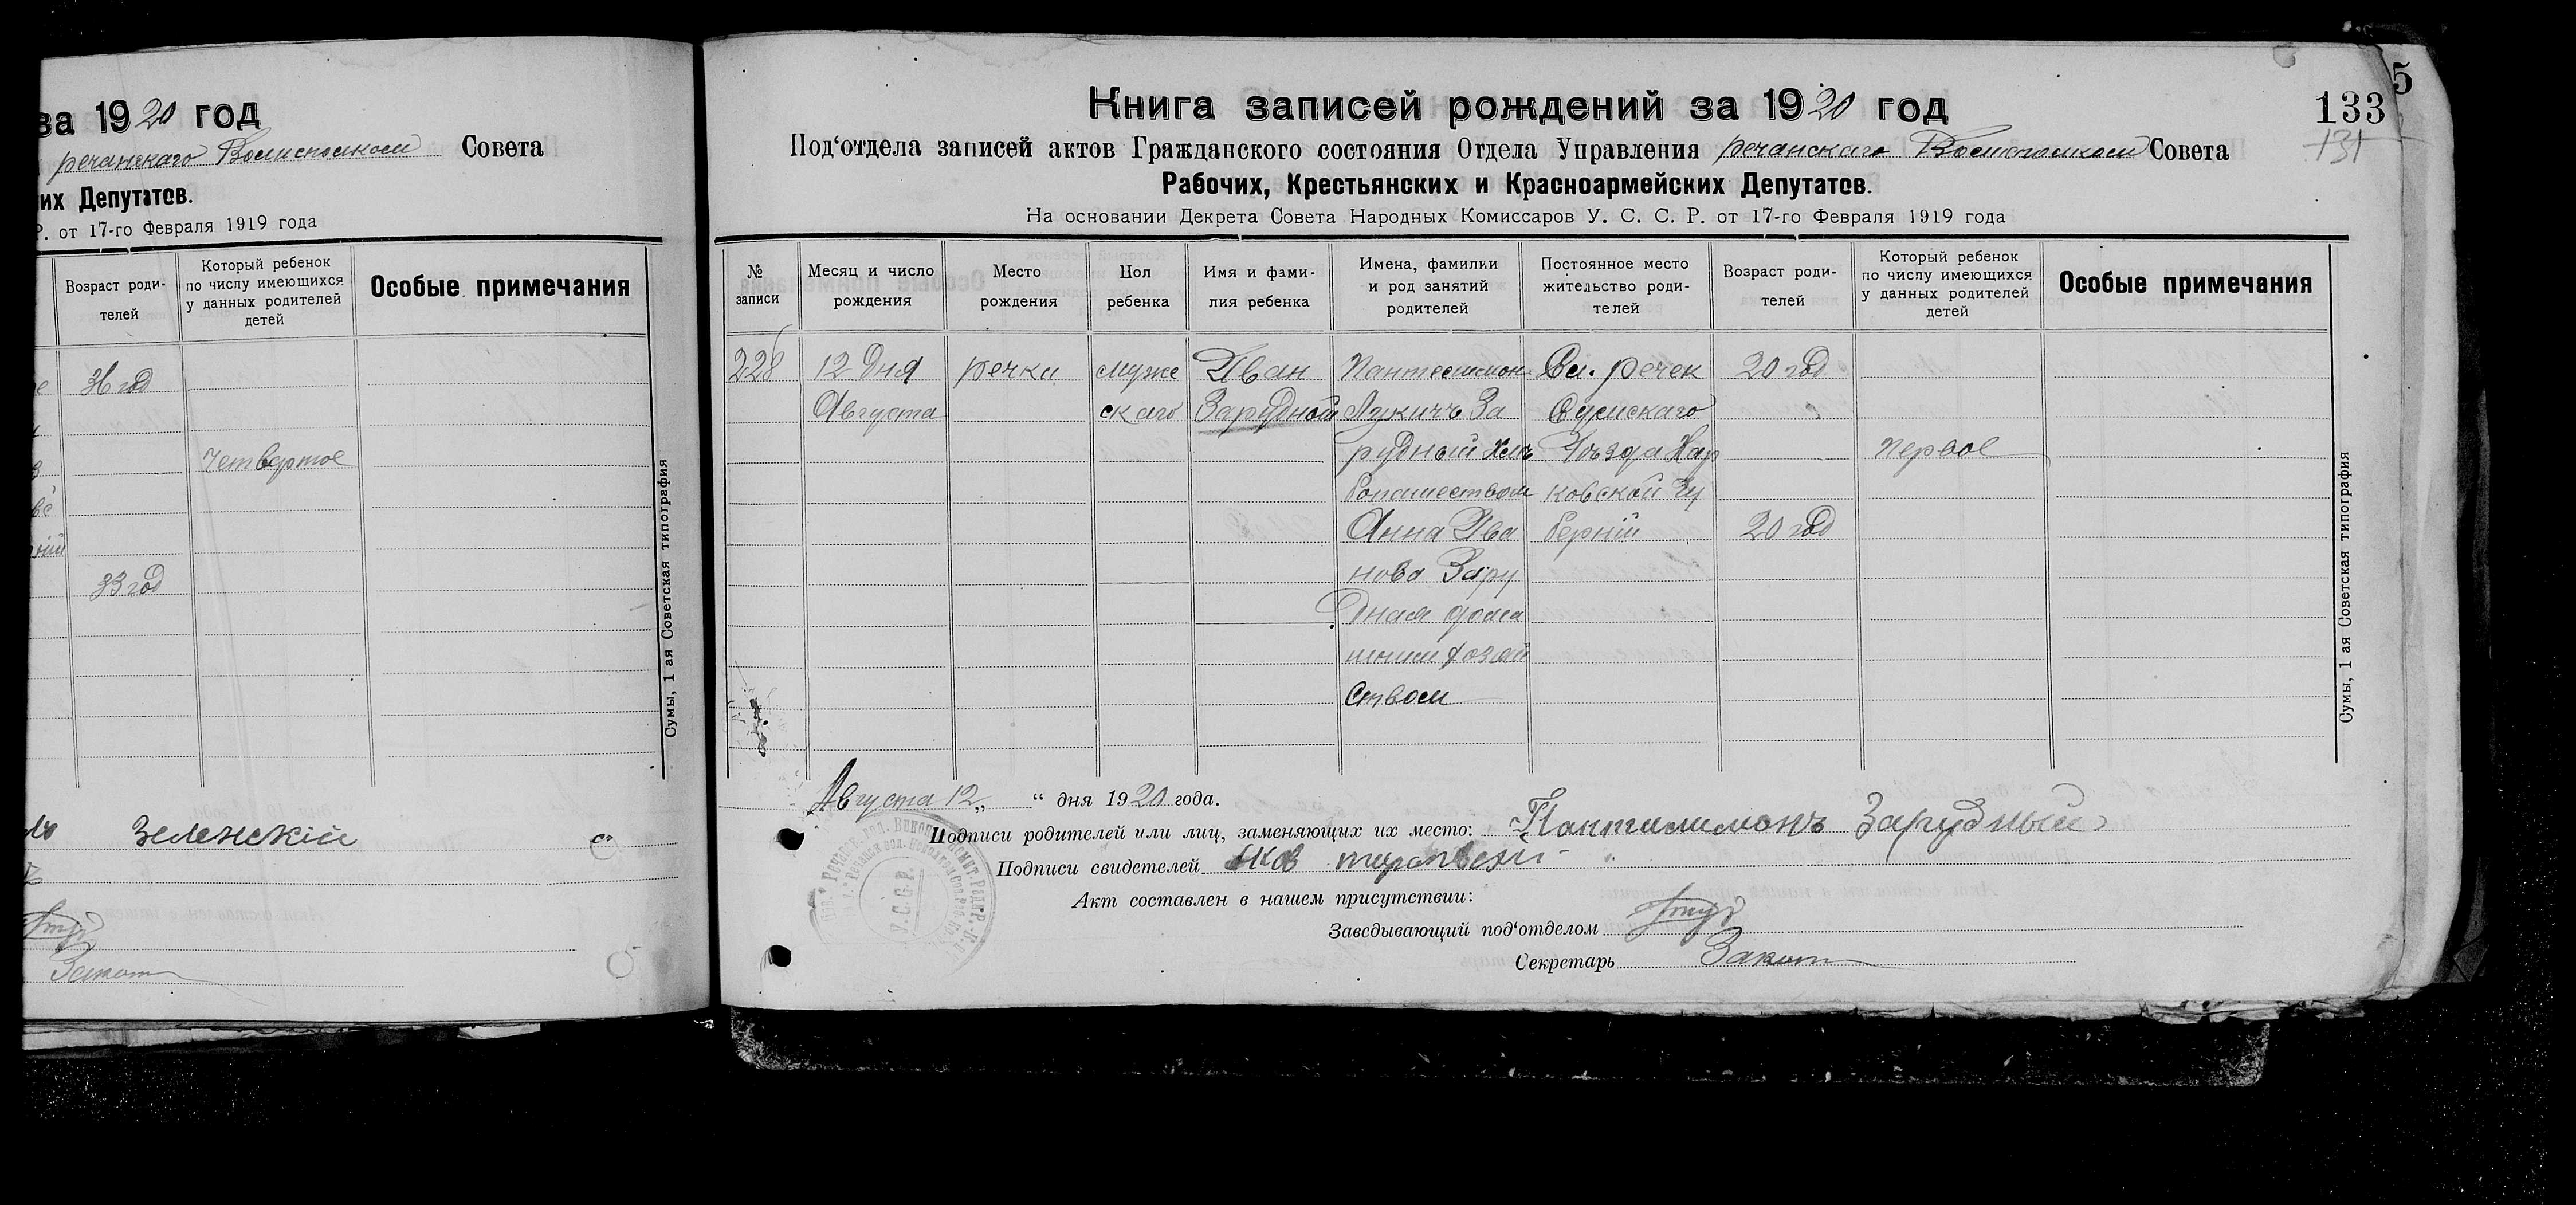 за 1920 год
речанского Волисполком Совета
их Депутатов.
Р. от 17-го Февраля 1919 года
Возраст роди-
телей
Который ребенок
по числу имеющихся
у данных родителей
детей
Особые примечания
36 год
Четвертое
33 год
Сумы, 1 ая Советская типография
Зеленский
Книга записей рождений за 1920 год
133
5
131
Под'отдела записей актов Гражданского состояния Отдела Управления речанского Волисполком Совета
Рабочих, Крестьянских и Красноармейских Депутатов.
На основании Декрета Совета Народных Комиссаров У. С. С. Р. от 17-го Февраля 1919 года
№
записи
Месяц и число
рождения
Место
рождения
Пол
ребенка
Имя и фами-
лия ребенка
Имена, фамилии
и род занятий
родителей
Постоянное место
жительство роди-
телей
Возраст роди-
телей
Который ребенок
по числу имеющихся
у данных родителей
детей
Особые примечания
228
12 дня
Августа
речки
муже
скаго
Иван
Зарудный
Пантелимон
Лукичъ За
рудный Хле
бопашеством
Анна Ива
нова Зару
дная дома
шним хозяй
ством
Сл. речек
Сумскаго
Уъзда Хар
ковской Гу
берній
20 год
20 год
первое
Сумы, 1 ая Советская типография
Августа 12 „ “ дня 1920 года.
Подписи родителей или лиц, заменяющих их место: Пантилимонъ Зарудный
Подписи свидетелей
Акт составлен в нашем присутствии:
Заведывающий под'отделом
Секретарь
У.С.С.Р.